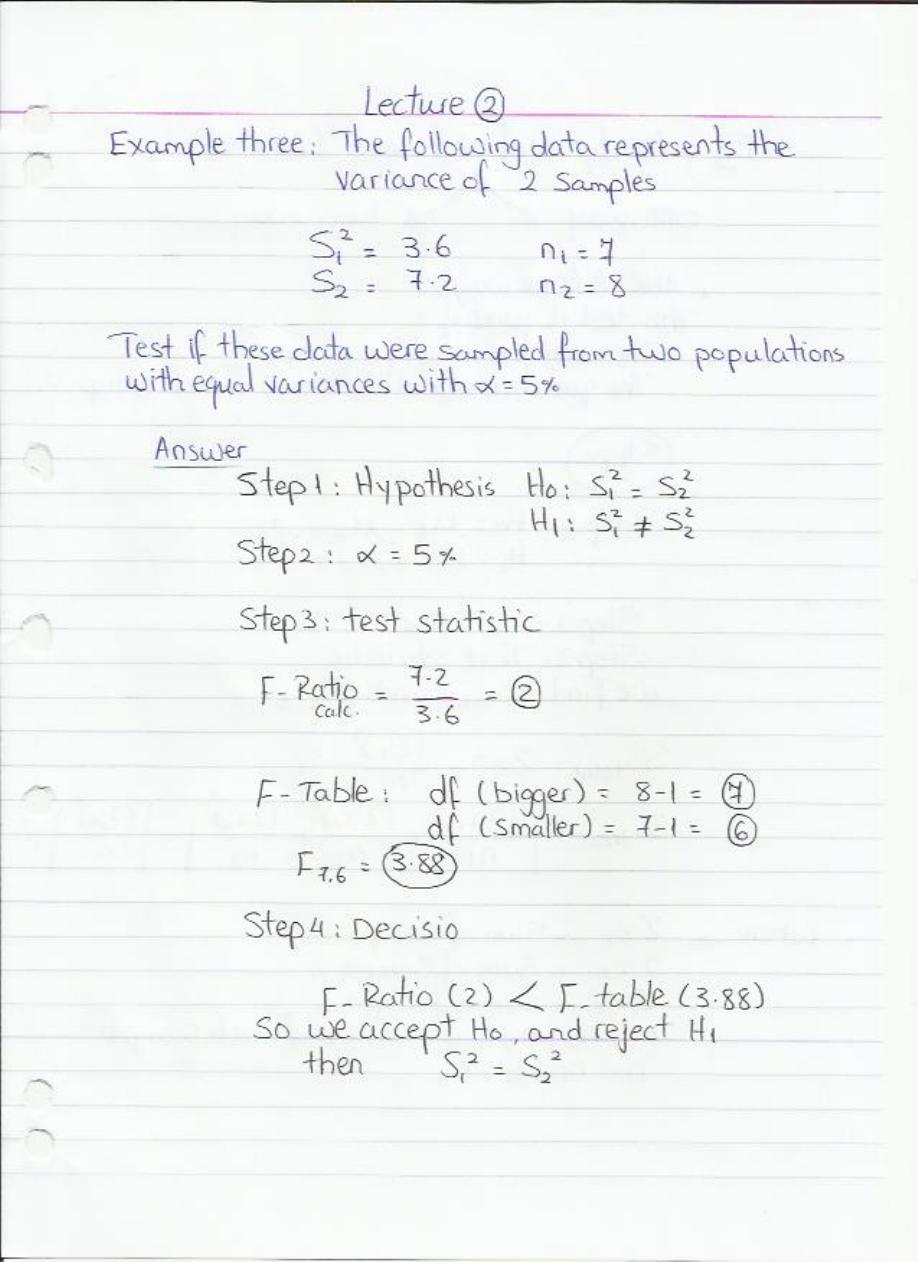 Lecture ②
Example three: The following data represents the
variance of 2 Samples
S₁² = 3.6 n₁ = 7
S₂ = 7.2 n₂ = 8
Test if these data were sampled from two populations
with equal variances with α = 5%
Answer
Step1: Hypothesis Ho: S₁² = S₂²
H₁: S₁² ≠ S₂²
Step2: α = 5%
Step3: test statistic
F-Ratio calc. = 7.2/3.6 = ②
F-Table: df (bigger) = 8-1 = ⑦
df (smaller) = 7-1 = ⑥
F₇,₆ = 3.88
Step4: Decisio
F-Ratio (2) < F-table (3.88)
So we accept Ho, and reject H₁
then S₁² = S₂²